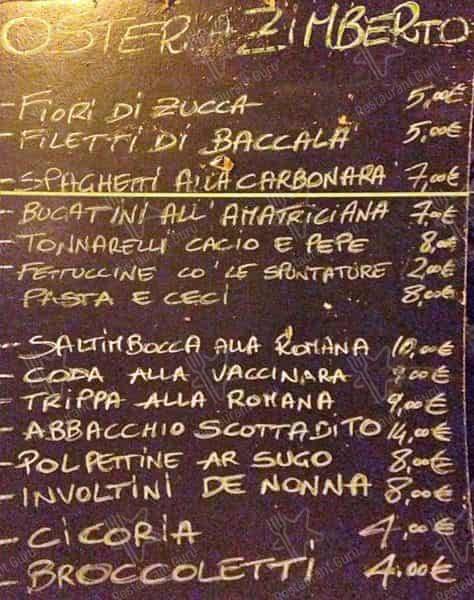 OSTERIA ZIMBERTO
- FIORI DI ZUCCA 5,00€
- FILETTI DI BACCALÀ 5,00€
- SPAGHETTI ALLA CARBONARA 7,00€
- BUCATINI ALL'AMATRICIANA 7,00€
- TONNARELLI CACIO E PEPE 8,00€
- FETTUCCINE CO' LE SPUNTATURE 12,00€
PASTA E CECI 8,00€
- SALTIMBOCCA ALLA ROMANA 10,00€
- CODA ALLA VACCINARA 9,00€
- TRIPPA ALLA ROMANA 9,00€
- ABBACCHIO SCOTTADITO 14,00€
- POLPETTINE AR SUGO 8,00€
- INVOLTINI DE NONNA 8,00€
- CICORIA 4,00€
- BROCCOLETTI 4,00€
Restaurant Guru